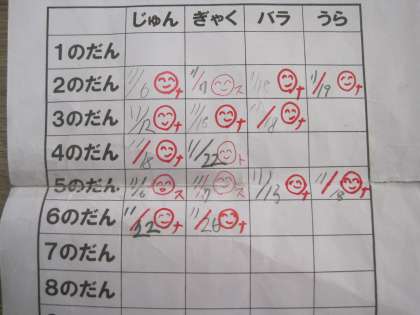 じゅん ぎゃく バラ うら
1のだん
2のだん 11/6 ナ 11/7 ス ナ 11/19 ナ
3のだん 11/12 ナ ナ 11/18 ナ
4のだん 11/18 ナ 11/22 ト
5のだん 11/6 ス ス 11/13 ナ 11/18 ナ
6のだん 11/22 ナ 11/26 ナ
7のだん
8のだん